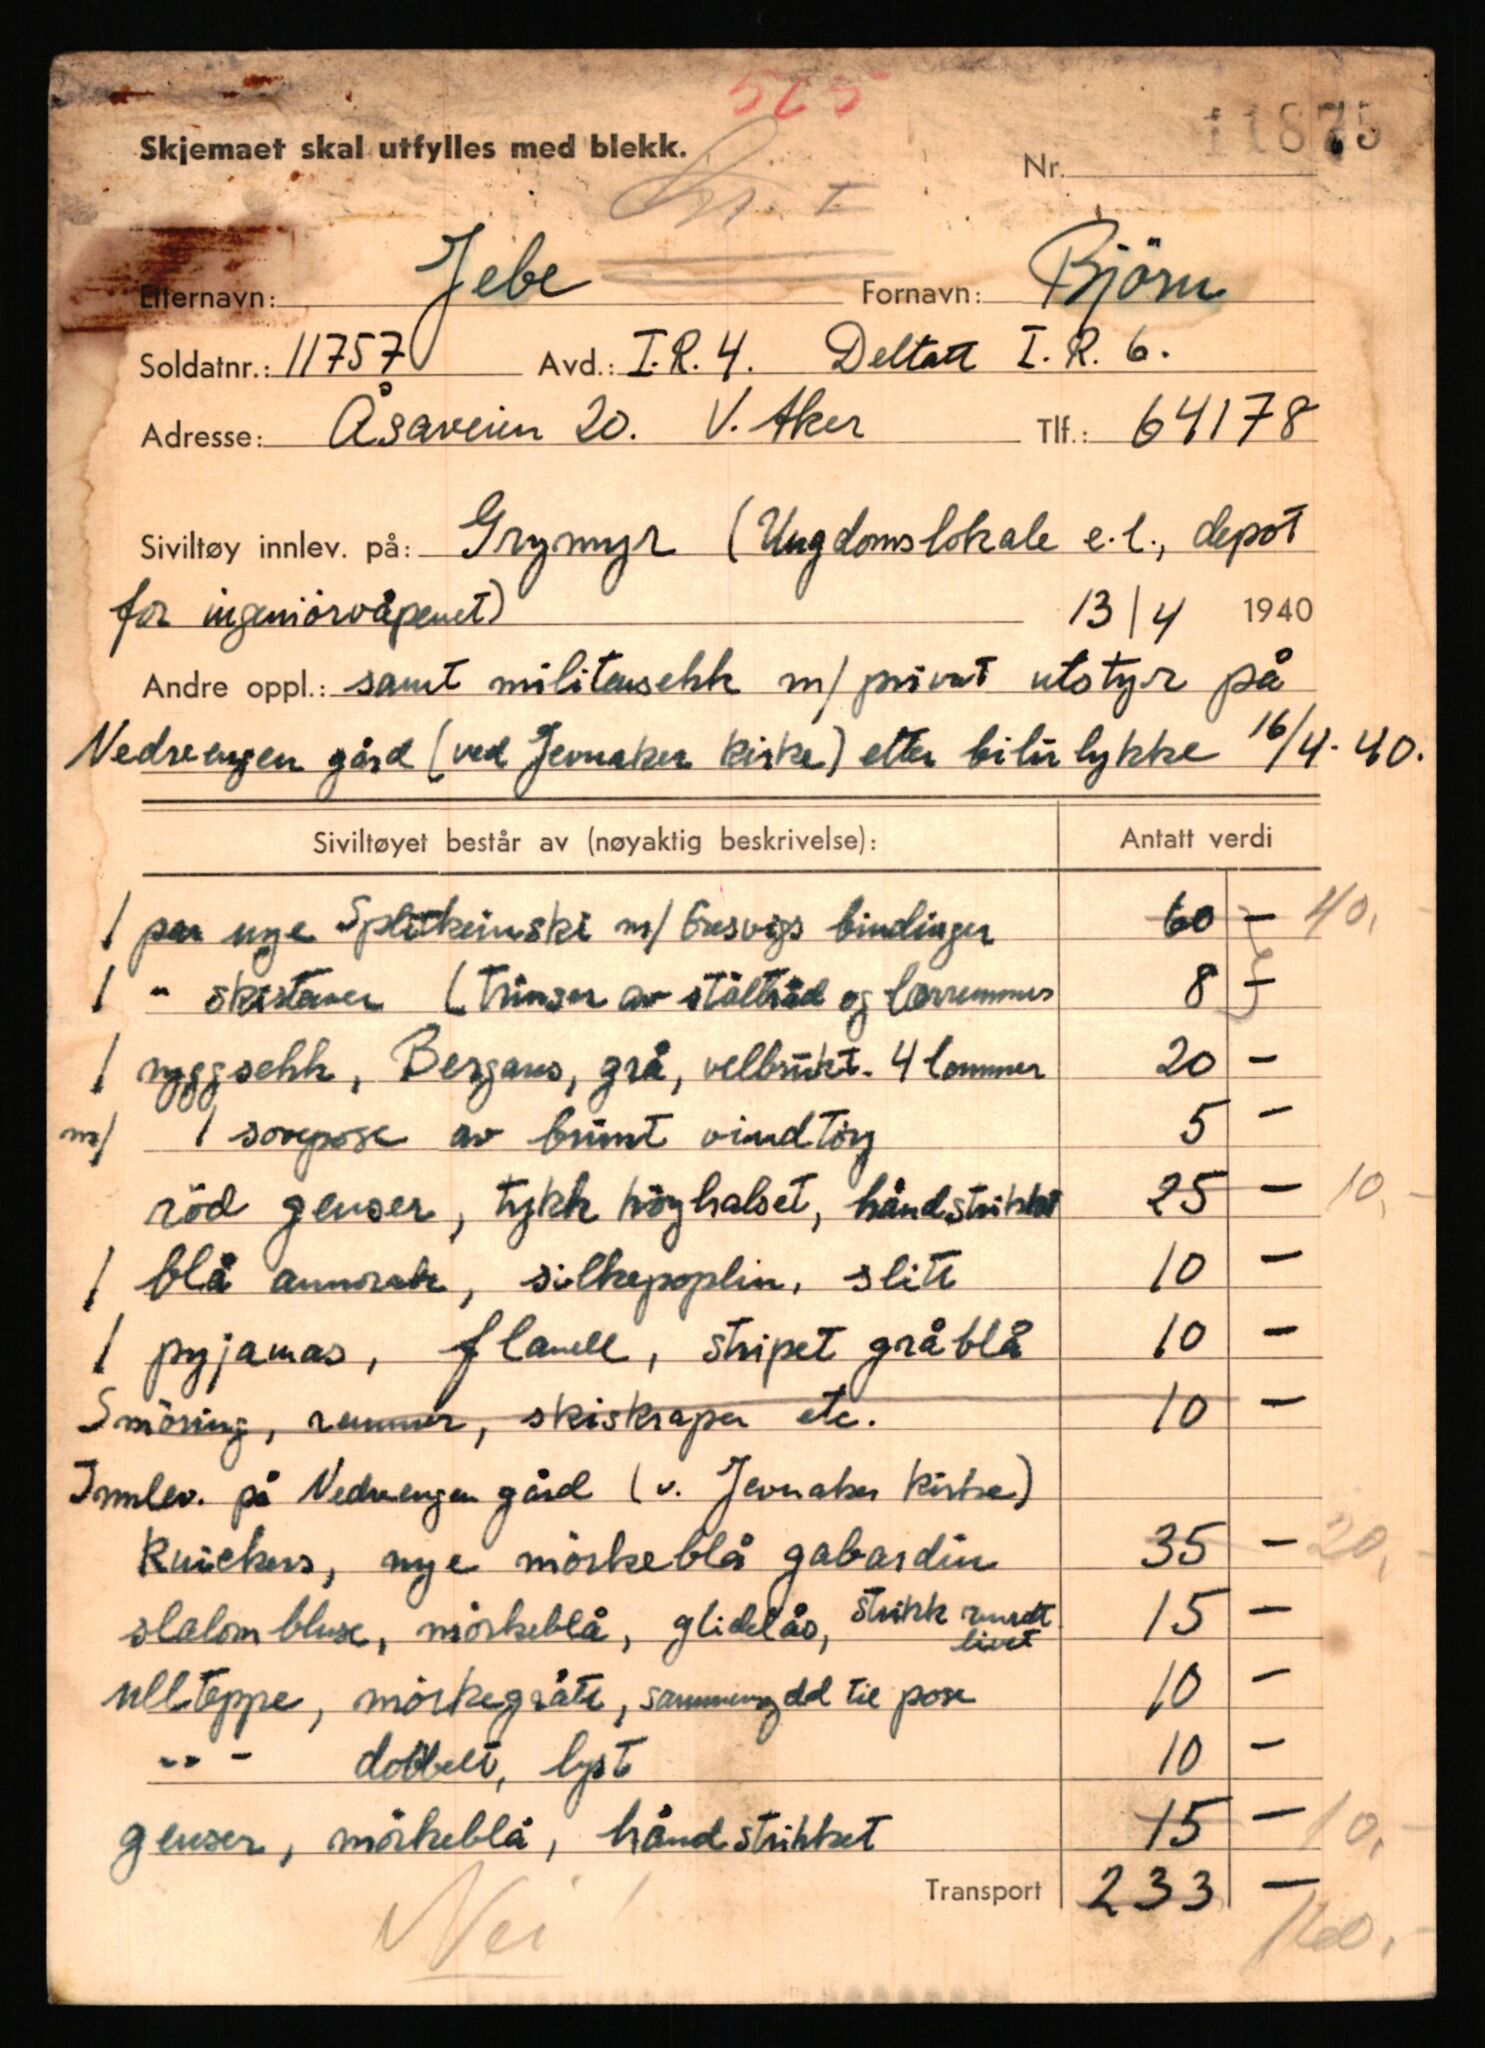 525
Skjemaet skal utfylles med blekk.
Nr. 11875
Etternavn: Jebe Fornavn: Björn
Soldatnr.: 11757 Avd.: I.R.4. Deltatt I.R.6.
Adresse: Åsaveien 20. V. Aker Tlf.: 64178
Siviltøy innlev. på: Grymyr (Ungdomslokale e.l., depot
for ingeniörvåpenet) 13/4 1940
Andre oppl.: samt militærsekk m/ privat utstyr på
Nedrengen gård (ved Jevnaker kirke) etter bilulykke 16/4-40.
Siviltøyet består av (nøyaktig beskrivelse): Antatt verdi
1 par nye Splitkeinski m/ Gresvigs bindinger 60 – 40,-
1 " skistaver (trinser av ståltråd og lærremmer 8 –
1 ryggsekk, Bergans, grå, velbrukt. 4 lommer 20 –
m/ 1 sovepose av brunt vindtöy 5 –
röd genser, tykk höyhalset, håndstrikket 25 – 10,-
1 blå annorakk, silkepoplin, slitt 10 –
1 pyjamas, flanell, stripet gråblå 10 –
Smöring, remmer, skiskraper etc. 10 –
Innlev. på Nedrengen gård (v. Jevnaker kirke)
Knickers, nye mörkeblå gabardin 35 – 20,-
slalombluse, mörkeblå, glidelås, strikk rundt livet 15 –
ullteppe, mörkegrått, sammensydd til pose 10 –
" - dobbelt, lyst 10 –
genser, mörkeblå, håndstrikket 15 – 10,-
Transport 233 –
Nei! 160,-